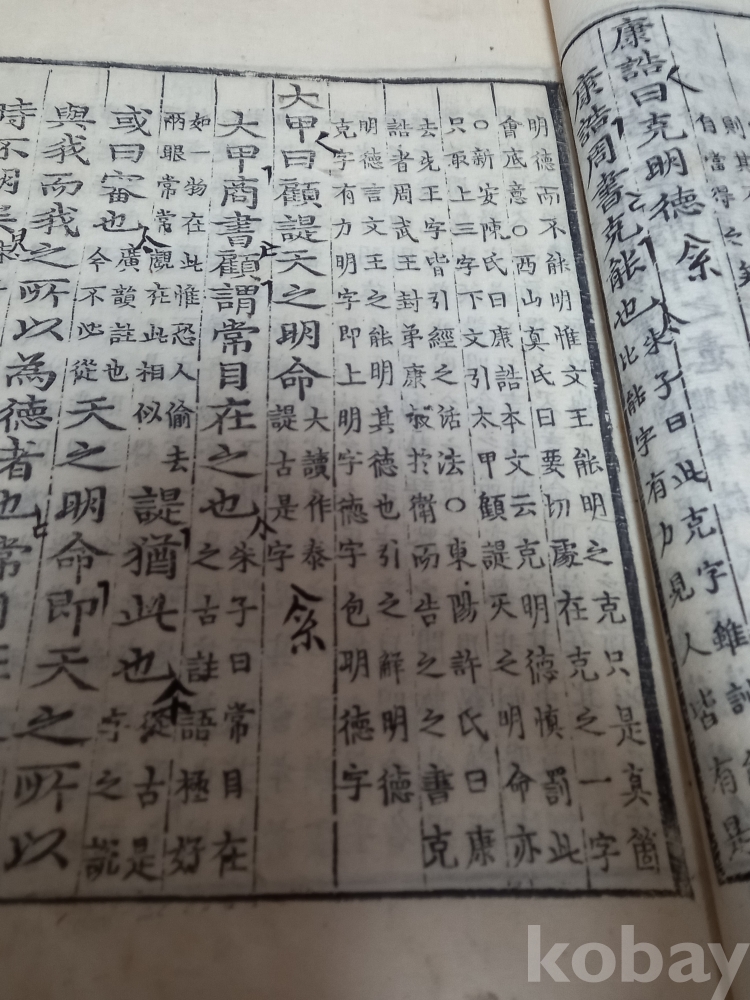 則其
自當得之矣
康誥曰克明德
康誥周書克能也
朱子曰此克字雖訓
此能字有力見人皆有是
明德而不能明惟文王能明之克只是真箇
會底意○西山真氏曰要切處在克之一字
○新安陳氏曰康誥本文云克明德慎罰此
只取上三字下文引太甲顧諟天之明命亦
去先王字皆引經之活法○東陽許氏曰康
誥者周武王封弟康叔於衛而告之之書克
明德言文王之能明其德也引之解明德
克字有力明字即上明字德字包明德字
大甲曰顧諟天之明命
大讀作泰
諟古是字
大甲商書顧謂常目在之也
朱子曰常目在
之古註語極好
如一物在此惟恐人偷去
兩眼常常覷在此相似
諟猶此也
從古是
字之說
或曰審也
廣韻註也
今不必從
天之明命即天之所以
與我而我之所以為德者也常目在
時不明矣
kobay